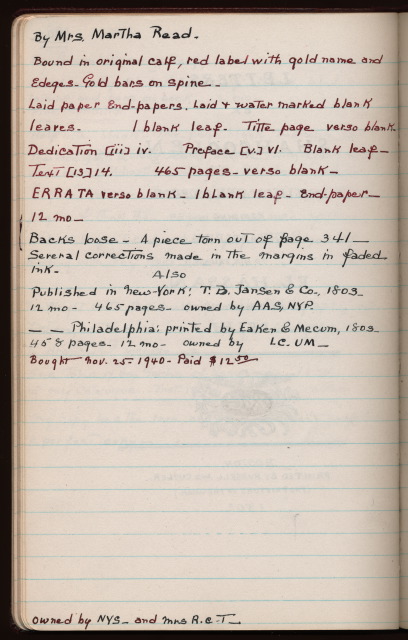 By Mrs. Martha Read.
Bound in original calf, red label with gold name and
Edeges. Gold bars on spine.
Laid paper End-papers. Laid & water marked blank
leaves. 1 blank leaf. Title page verso blank.
Dedication [iii] iv. Preface [v.] VI. Blank leaf -
Text [13] 14. 465 pages - verso blank -
ERRATA verso blank - 1 blank leaf - End-paper -
12 mo -
Backs loose - A piece torn out of page 341 -
Several corrections made in the margins in faded
ink -
Also
Published in New-York; T. B. Jansen & Co., 1803
12 mo - 465 pages - owned by AAS, NYP.
- - Philadelphia: printed by Eaken & Mecum, 1803
458 pages - 12 mo - owned by LC. UM -
Bought Nov. 25 - 1940 - Paid $12.50
owned by NYS - and Mrs R. C. T -